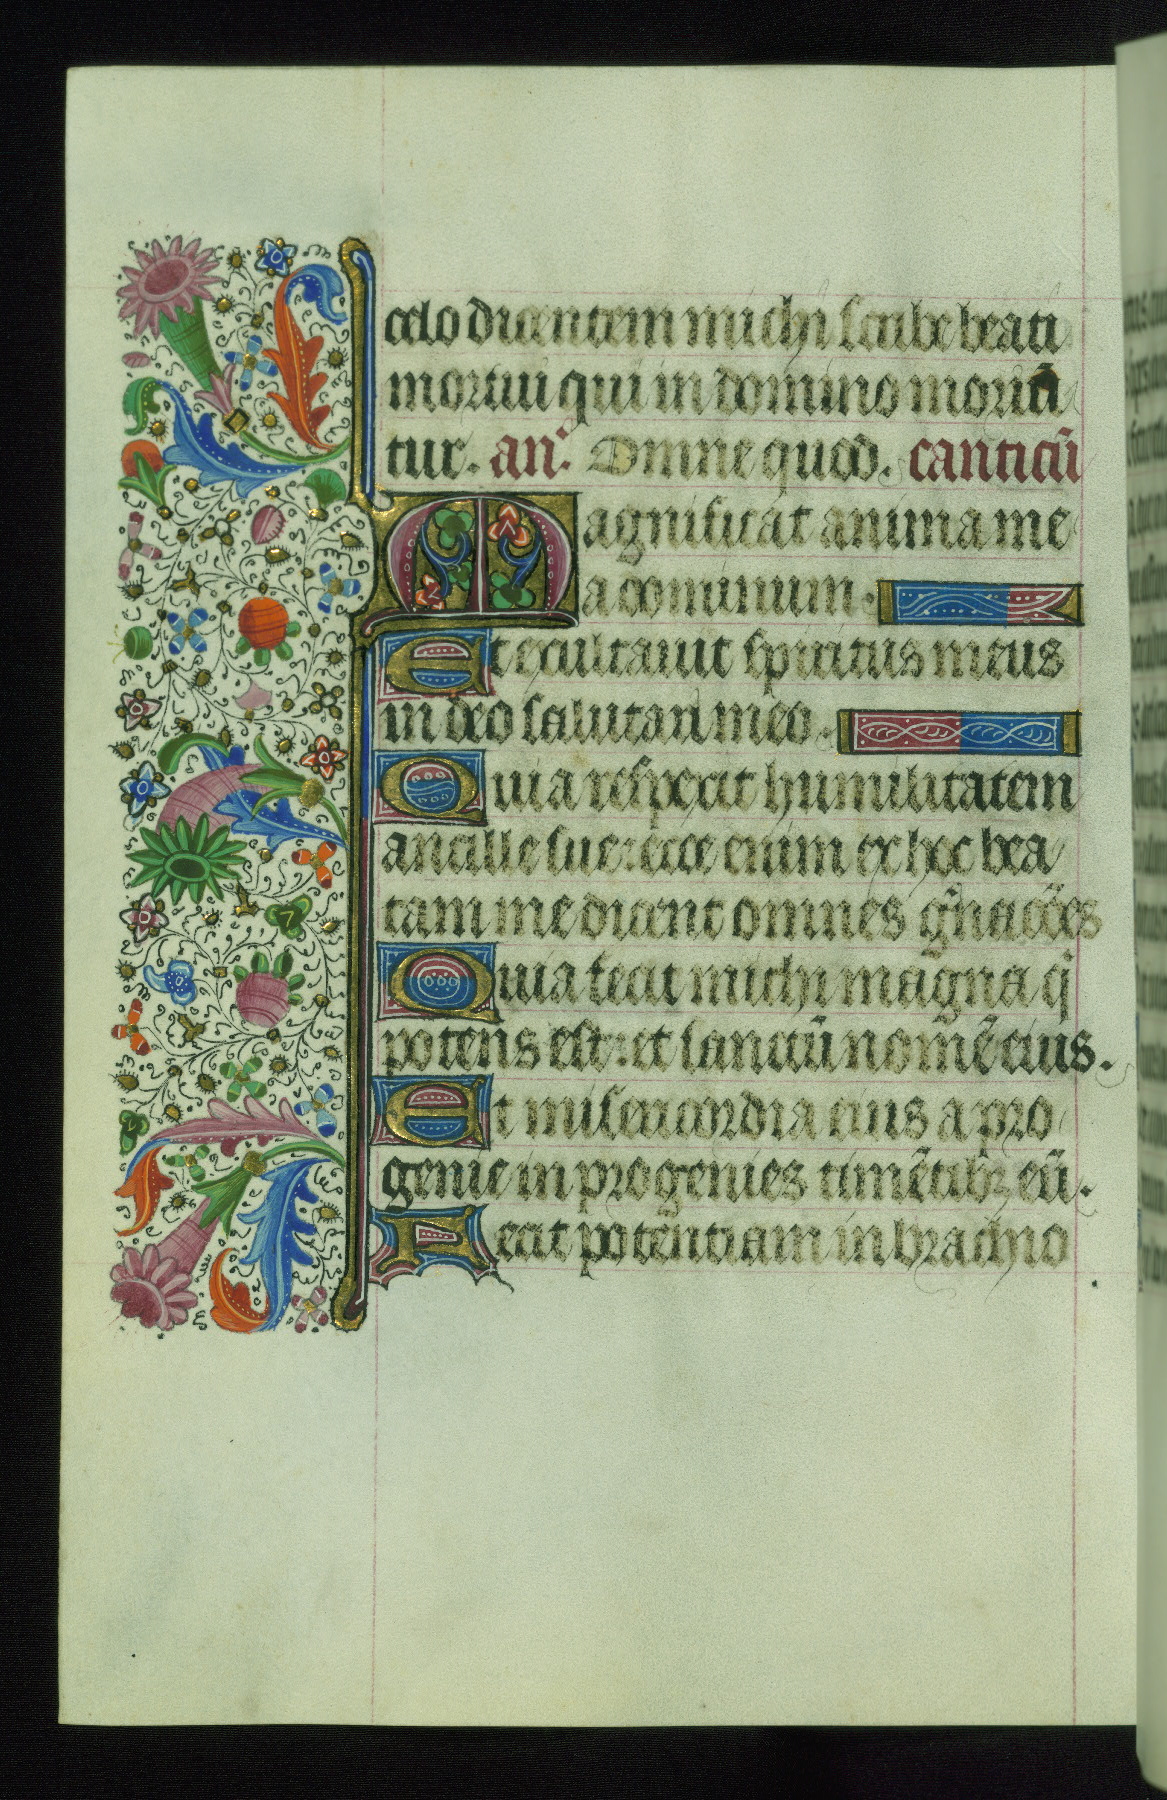 celo dicentem michi scribe beati
mortui qui in domino moriū
tur. an̄. Omne quod. canticū
Magnificat anima me
a dominum.
Et exultauit spiritus meus
in deo salutari meo.
Quia respexit humilitatem
ancille sue: ecce enim ex hoc bea
tam me dicent omnes gn̄acōes
Quia fecit michi magna q̄
potens est: et sanctū nomē eius.
Et misericordia eius a pro
genie in progenies timētibꝫ eū.
Fecit potentiam in brachio